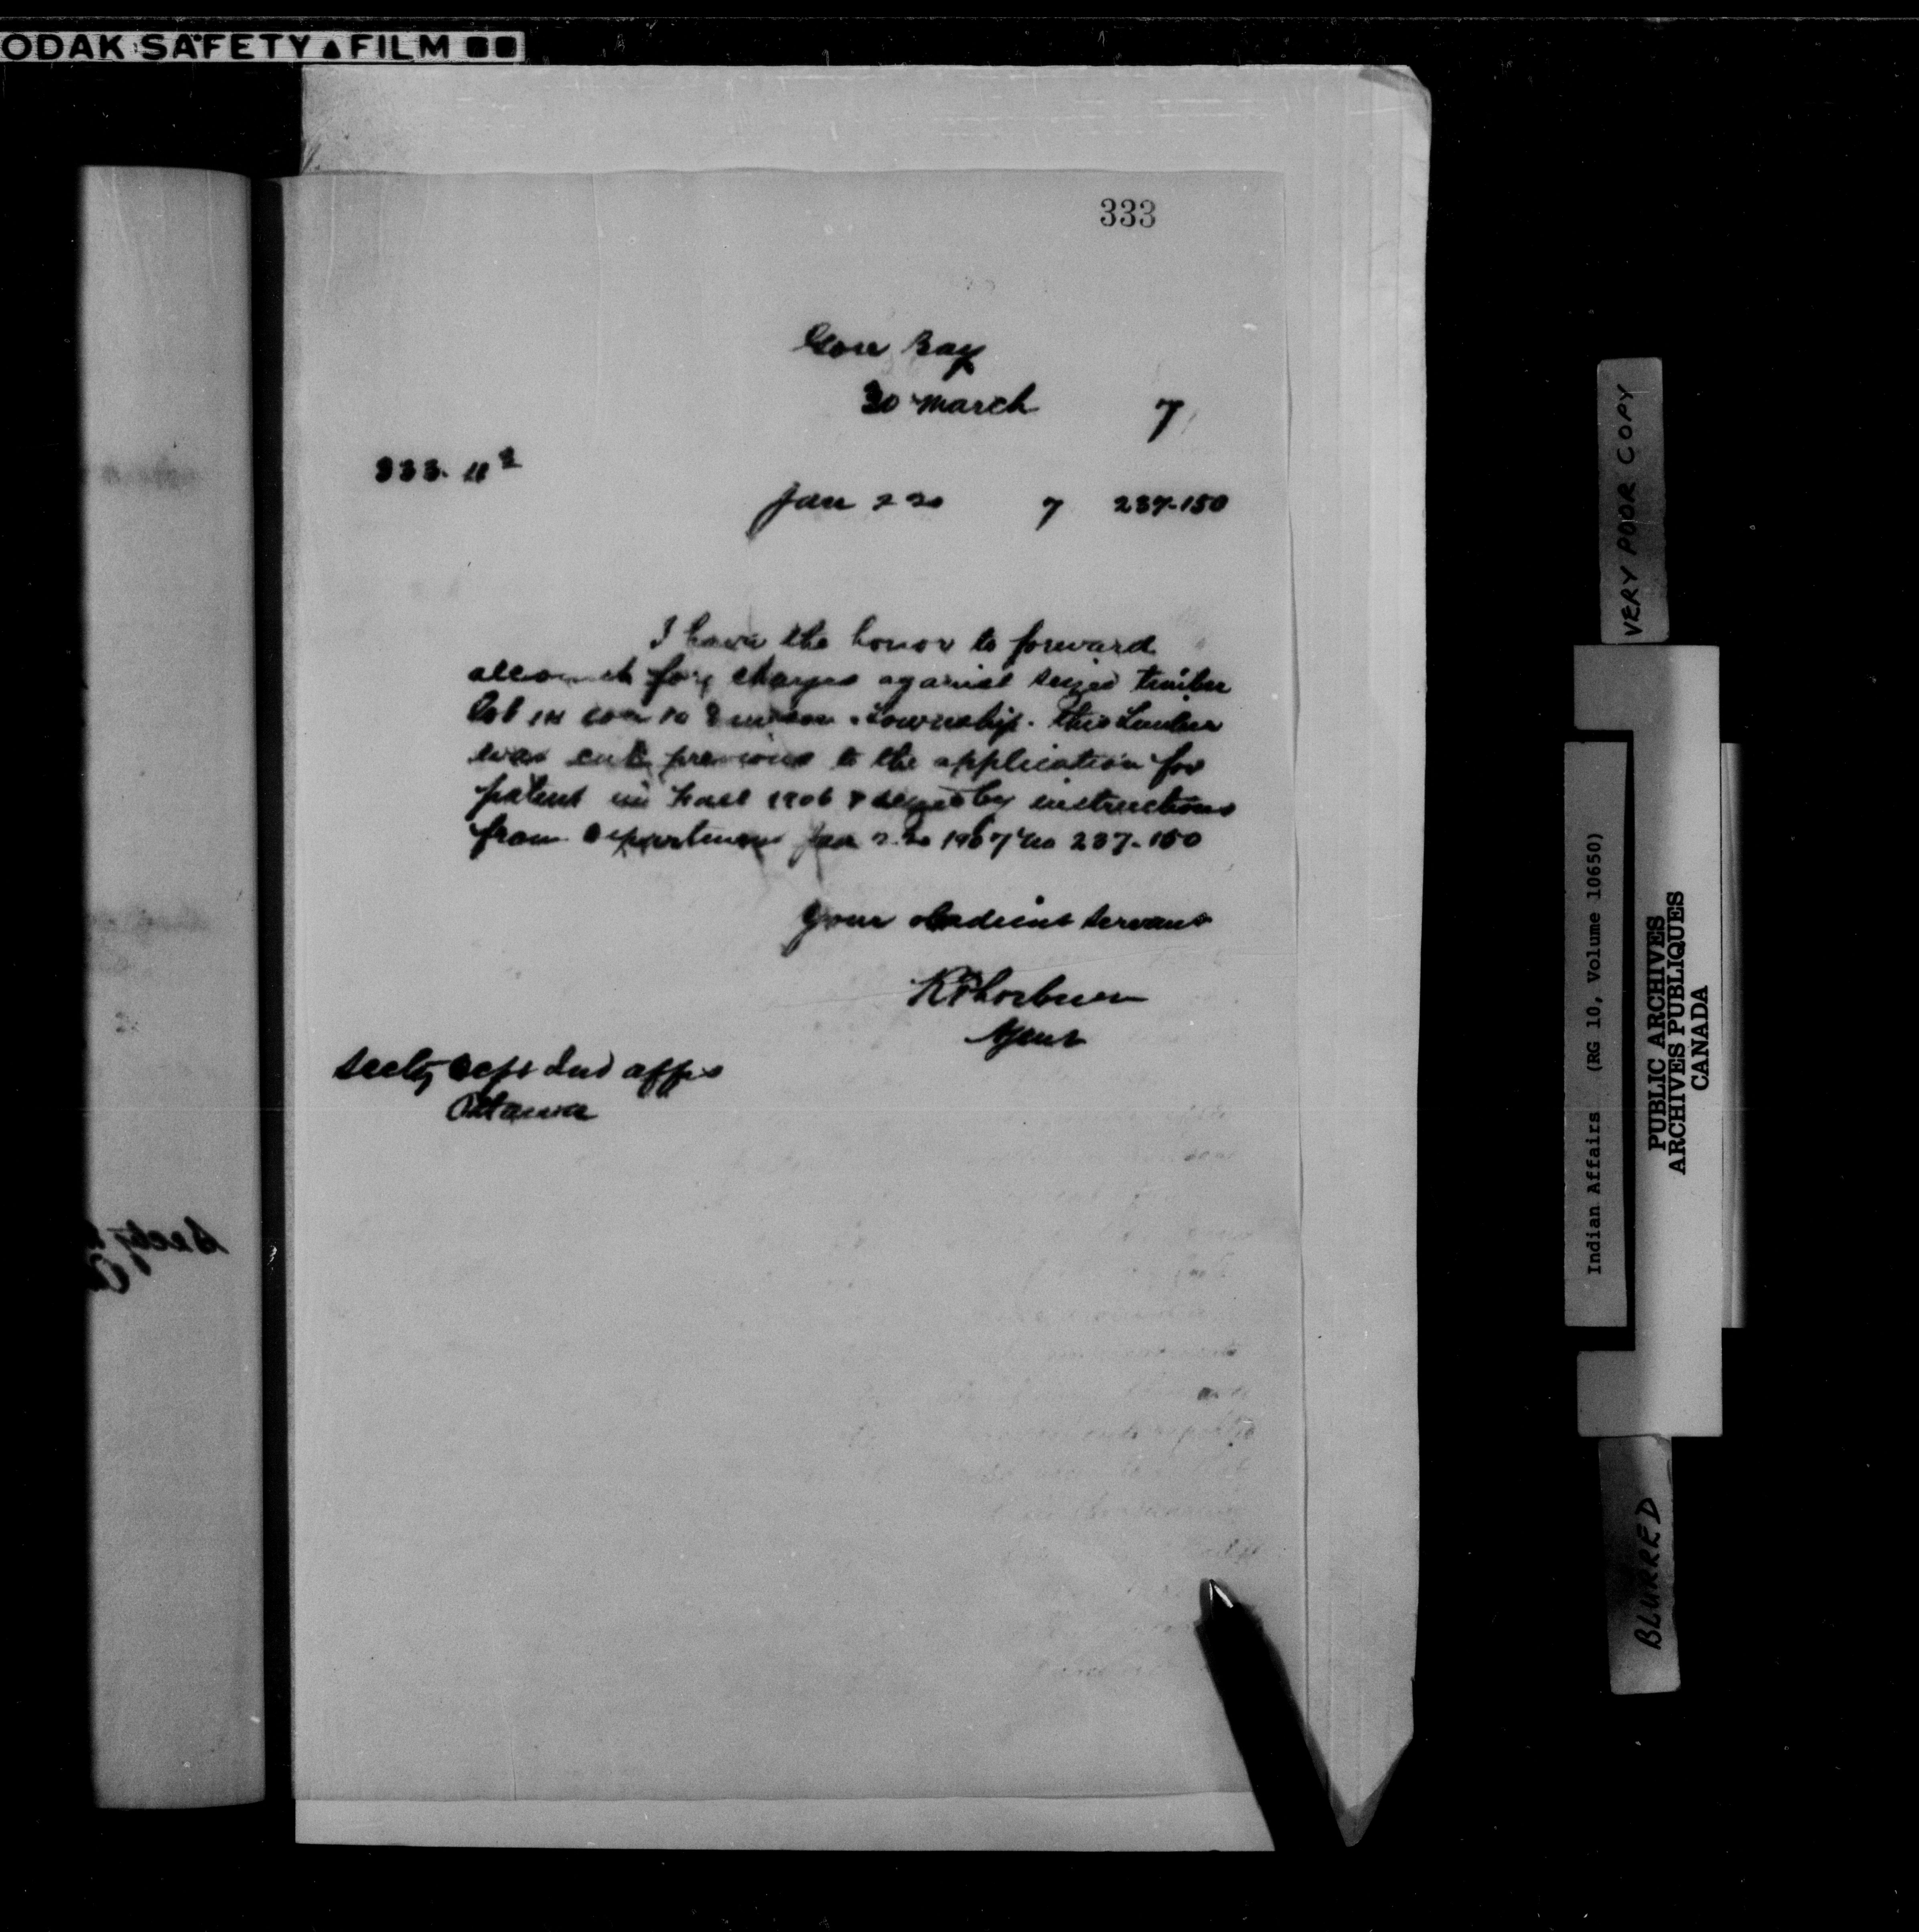 ODAK SAFETY ▲ FILM
333
Gore Bay
30 March 7
333. 11
Jan 2 7 237-150
I have the honor to forward
account for charges against seized timber
Lot con 10 Township. this timber
was cut previous to the application for
patent in 1906 & seized by instructions
from Department Jan 1907 No 237-150
Your obedient servant
R Thorburn
Agent
Secty Dept Ind affrs
Ottawa
Secty
VERY POOR COPY
Indian Affairs (RG 10, Volume 10650)
PUBLIC ARCHIVES
ARCHIVES PUBLIQUES
CANADA
BLURRED